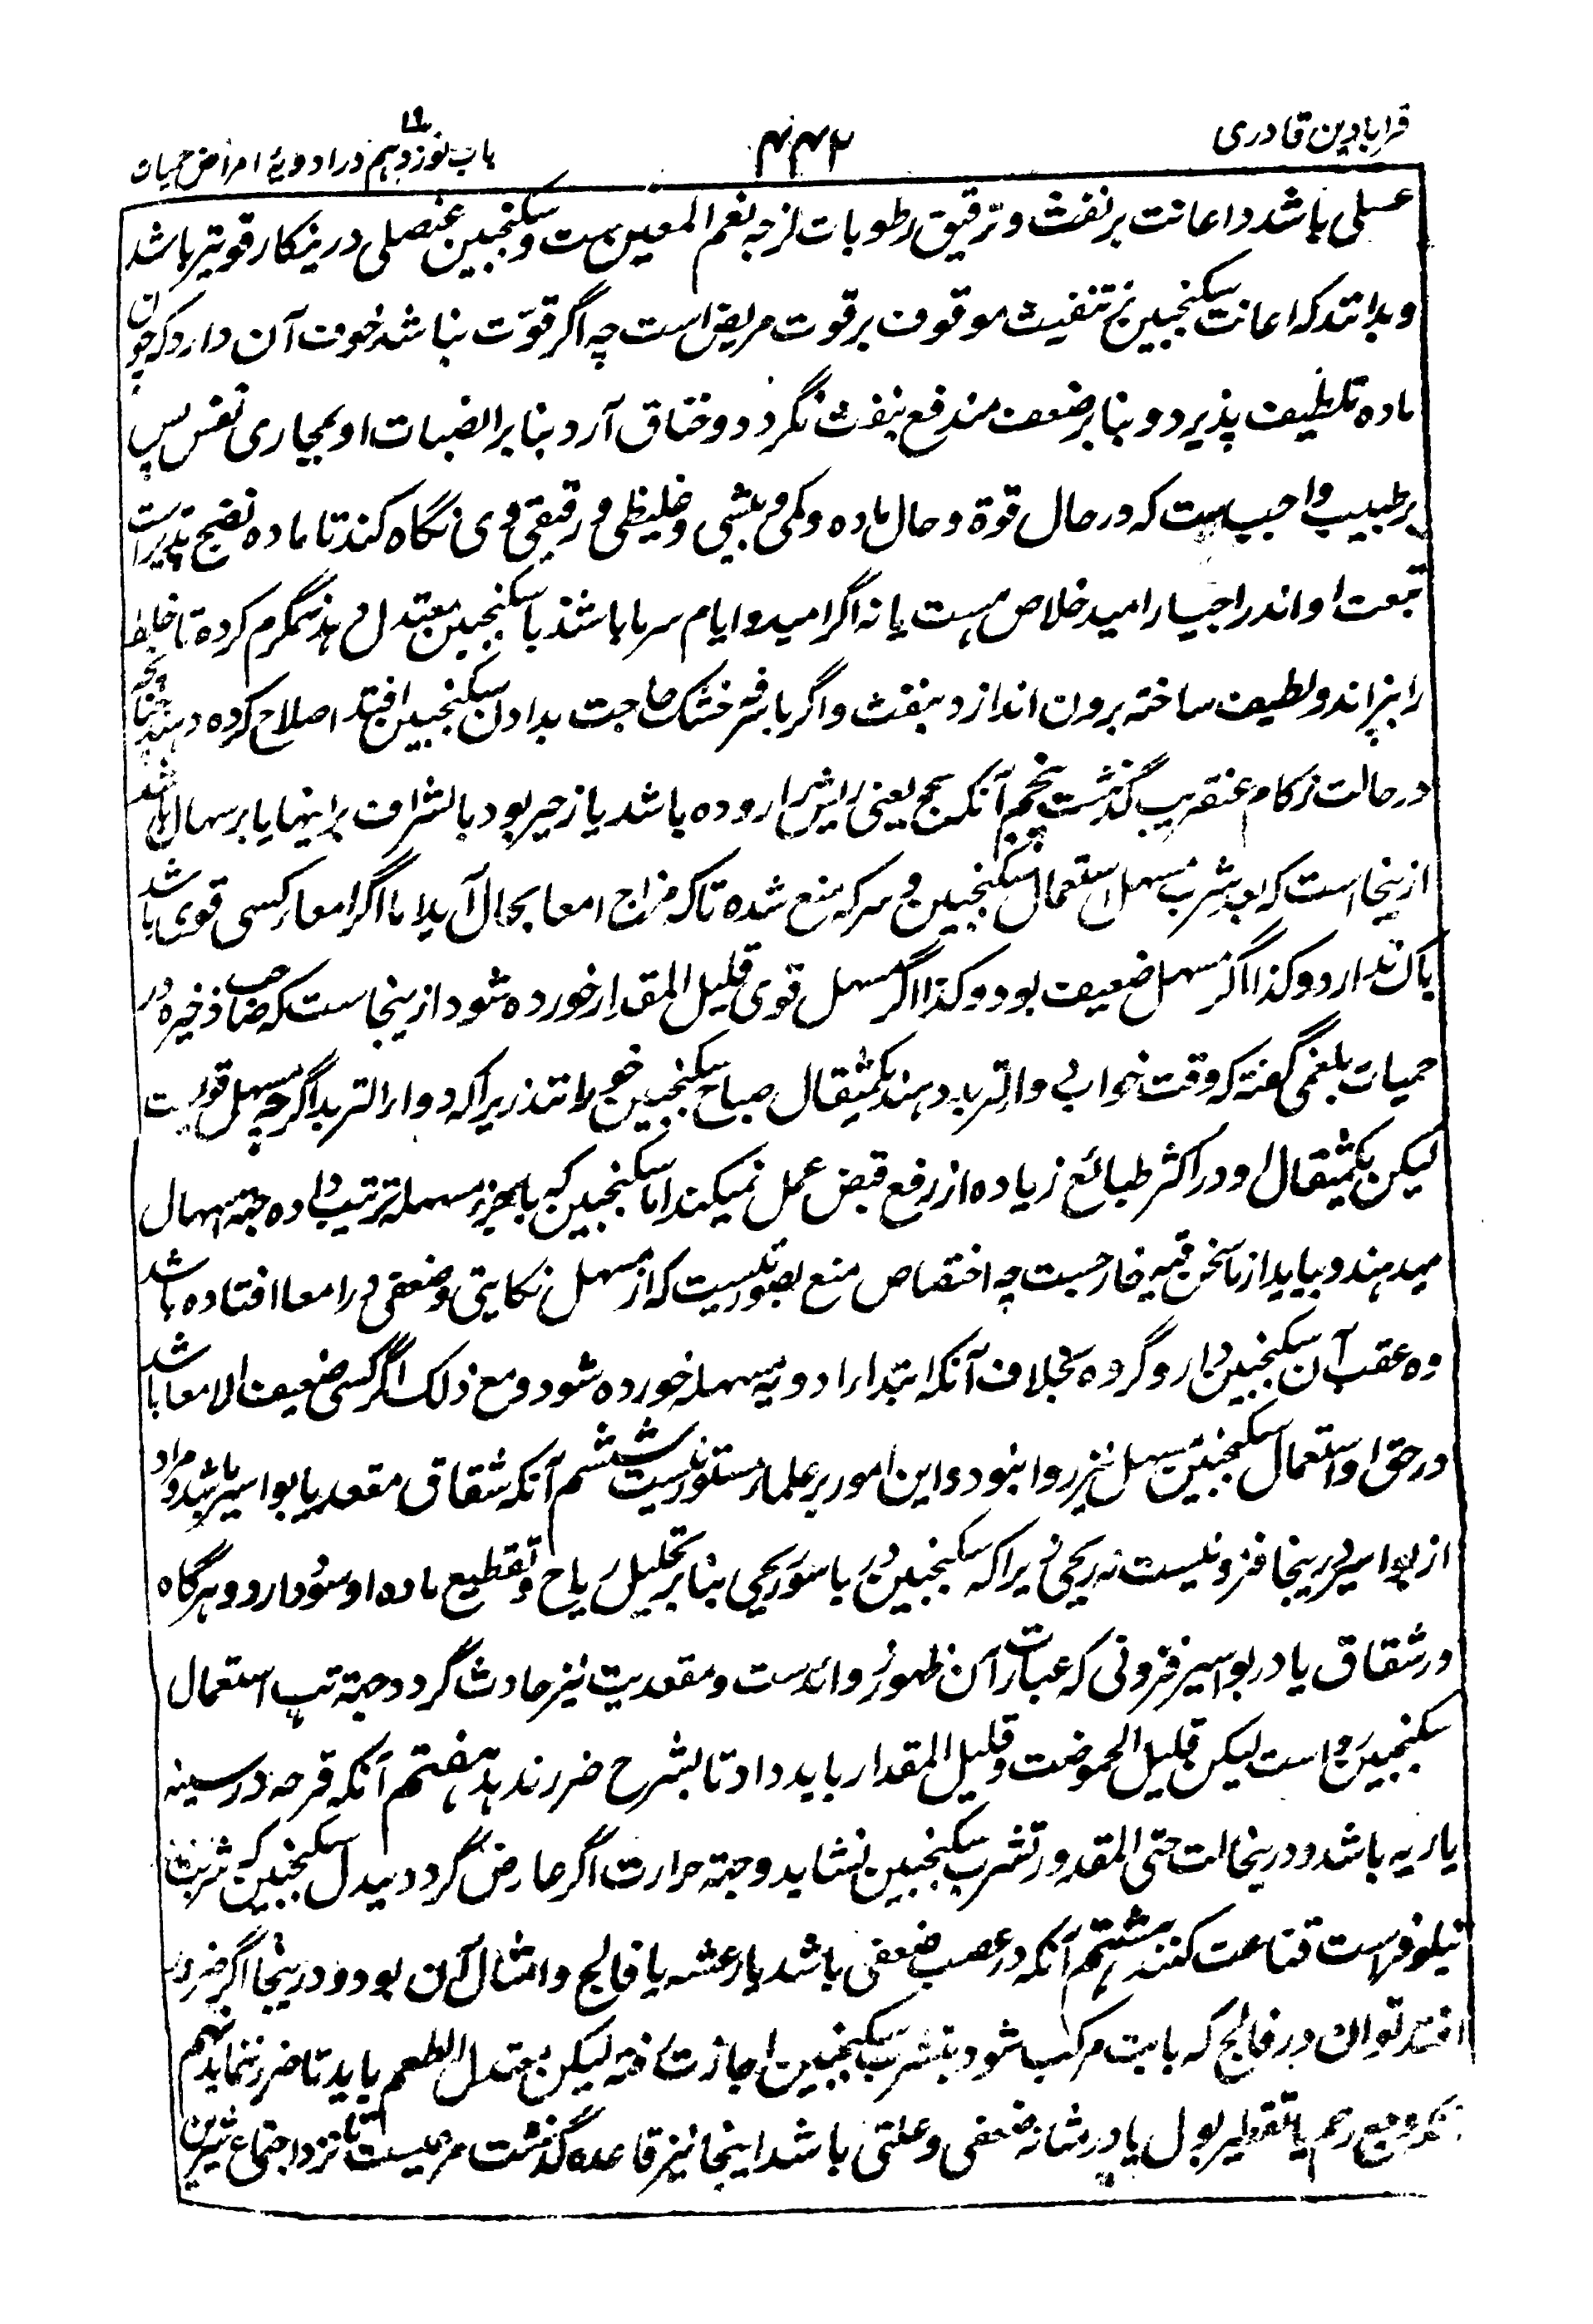 قرابادین قادری
۴۴۲
باب نوزدهم در ادویهٔ امراض حمیات
عسلی باشد و اعانت بر نفث و ترقیق رطوبات لزجه نعم المعین ست و سکنجبین عنصلی درینکار قویتر باشد
و بدانند که اعانت سکنجبین بر تنفیث موقوف بر قوت مریض است چه اگر قوّت نباشد خوف آن دارد که چون
ماده تلطیف پذیرد و بنا بر ضعف مندفع بنفث نگردد و خناق آرد بنا بر انصباب او بمجاری نفس پس
بر طبیب واجب ست که در حال قوة و حال ماده و کمی و بیشی و غلیظی و رقیقی وی نگاه کند تا ماده نضج پذیر است
تبعت او اندر احیا را امید خلاص هست یا نه اگر امید و ایام سرما باشد با سکنجبین معتدل دهند گرم کرده تا خلط
را بپزاند و لطیف ساخته برون اندازد بنفث و اگر با سرفه خشک حاجت بدادن سکنجبین افتد اصلاح کرده دهند چنانچه
در حالت زکام عنقریب گذشت پنجم آنکه سحج یعنی خراش روده باشد یا زحیر بود بالشراف براینها یا بر سهال باشد
ازینجاست که بعد شرب مسهل استعمال سکنجبین و سرکه منع شده تا که مزاج امعا بحال آید اما اگر امعاء کسی قوی باشد
باک ندارد و کذا اگر مسهل ضعیف بود و کذا اگر مسهل قوی قلیل المقدار خورده شود ازینجاست که صاحب ذخیره در
حمیات بلغمی گفته که وقت خواب دواء التربد دهند یکمثقال صباح سکنجبین خورانند زیرا که دواء التربد اگرچه مسهل قوی ست
لیکن یکمثقال او در اکثر طبائع زیاده از رفع قبض عمل نمیکند اما سکنجبین که باجزاء مسهله ترتیب داده جهة اسهال
میدهند و بیاید از ما نحن فیه خارجست چه اختصاص منع بصورتیست که از مسهل نکایتی و ضعفی در امعا افتاده باشد
وه عقب آن سکنجبین وارد گردد بخلاف آنکه ابتداء ادویه مسهله خورده شود و مع ذلک اگر کسی ضعیف الامعا باشد
در حق او استعمال سکنجبین مسهل نیز روا نبود و این امور بر علماء مستور نیست ششم آنکه شقاق مقعد یا بواسیر باشد و مراد
از بواسیر درینجا فزونیست نه ریحی زیرا که سکنجبین در باسور ریحی بنا بر تحلیل ریاح و تقطیع ماده او سود دارد و هرگاه
در شقاق یا در بواسیر فزونی که عبارت آن ظهور زوائدست و مقعدیت نیز حادث گردد جهة تپ استعمال
سکنجبین رواست لیکن قلیل الحموضت و قلیل المقدار باید داد تا بشرح ضرر ندهد هفتم آنکه قرحه در سینه
یا ریه باشد و درینحالت حتی المقدور تشرب سکنجبین نشاید و جهة حرارت اگر عارض گردد ببدل سکنجبین که شربت
نیلوفر است قناعت کنند هشتم آنکه در عصب ضعفی باشد یا رعشه یا فالج و امثال آن بود و درینجا اگر ضرورت
افتد توان در فالج که با تب مرکب شود بتشرب سکنجبین اجازت گفته لیکن معتدل الطعم باید تا ضرر ننماید نهم
آنکه وجع رحم یا تقطیر بول یا در مثانه ضعفی و علتی باشد اینجا نیز قاعده گذشت مرعیست تا نزد اجتماع شیرین